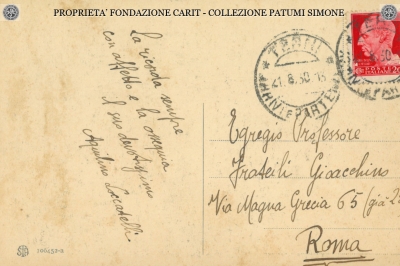 PROPRIETA' FONDAZIONE CARIT - COLLEZIONE PATUMI SIMONE
La ricorda sempre
con affetto e la ossequia
il suo devotissimo
Aquilino Locatelli
TERNI
21.8.30
ARRIVI E PARTENZE
POSTE ITALIANE
Egregio Professore
Frateili Gioacchino
Via Magna Grecia 65 (già 2
Roma